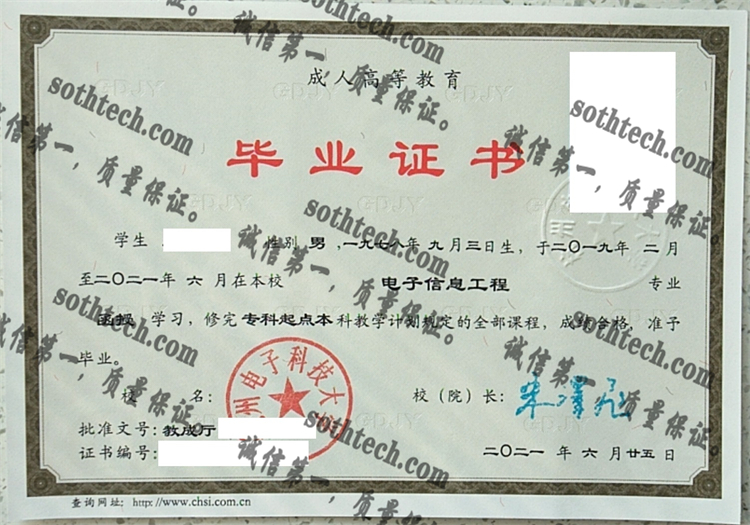 成人高等教育
毕业证书
学生 性别 男 ,一九七八年 九 月 三 日生, 于二〇一九年 二 月
至二〇二一年 六 月在本校 电子信息工程 专业
函授 学习, 修完 专科起点本 科教学计划规定的全部课程, 成绩合格, 准予
毕业。
校 名: 校（院）长:
州电子科技大
批准文号: 教成厅
证书编号: 二〇二一 年 六 月 廿五 日
查询网址: http://www.chsi.com.cn
sothtech.com
诚信第一，质量保证。
sothtech.com
诚信第一，质量保证。
sothtech.com
诚信第一，质量保证。
sothtech.com
诚信第一，质量保证。
sothtech.com
诚信第一，质量保证。
sothtech.com
诚信第一，质量保证。